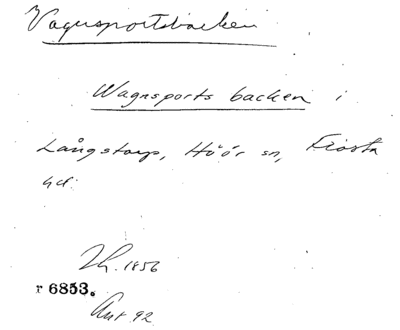 Vagnsportsbacken
Wagnsports backen i
Långstorp, Höör sn, Frosta
hd.
Th. 1856
r 6853.
Ant 92